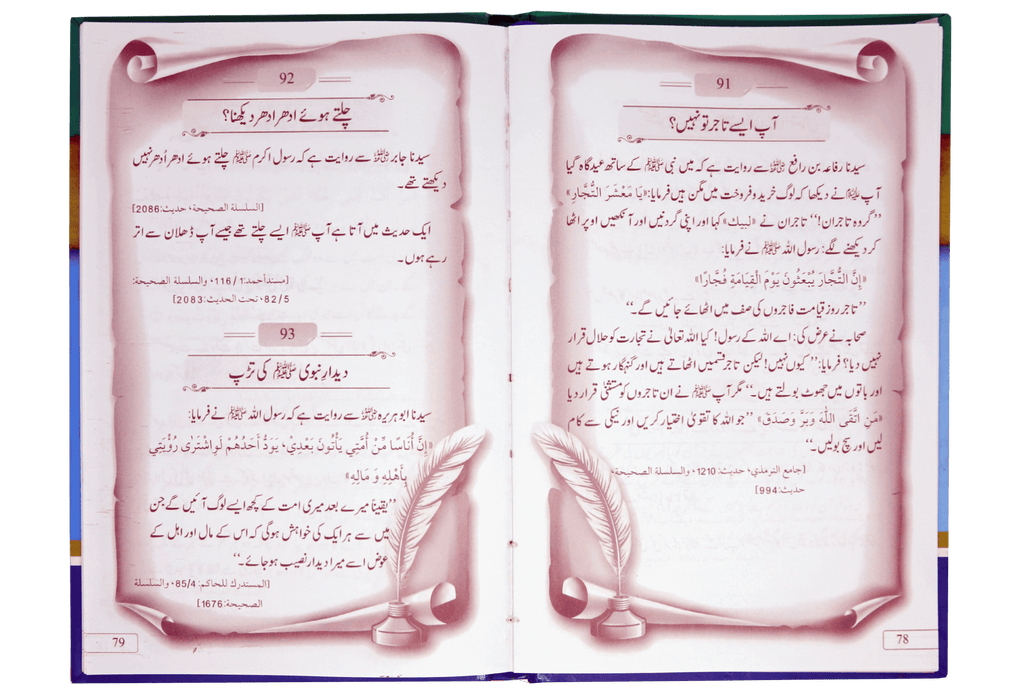 91
آپ ایسے تاجر تو نہیں؟
سیدنا رفاعہ بن رافع ﷜ سے روایت ہے کہ میں نبی ﷺ کے ساتھ عیدگاہ گیا
آپ ﷺ نے دیکھا کہ لوگ خرید و فروخت میں مگن ہیں فرمایا: «یَا مَعْشَرَ التُّجَّارِ»
’’گروہ تاجران!‘‘ تاجران نے «لبیك» کہا اور اپنی گردنیں اور آنکھیں اوپر اٹھا
کر دیکھنے لگے: رسول اللہ ﷺ نے فرمایا:
«إِنَّ التُّجَّارَ يُبْعَثُونَ يَوْمَ الْقِيَامَةِ فُجَّارًا»
’’تاجر روز قیامت فاجروں کی صف میں اٹھائے جائیں گے۔‘‘
صحابہ نے عرض کی: اے اللہ کے رسول! کیا اللہ تعالیٰ نے تجارت کو حلال قرار
نہیں دیا؟ فرمایا: ’’کیوں نہیں! لیکن تاجر قسمیں اٹھاتے ہیں اور گنہگار ہوتے ہیں
اور باتوں میں جھوٹ بولتے ہیں۔‘‘ مگر آپ ﷺ نے ان تاجروں کو مستثنیٰ قرار دیا
«مَنِ اتَّقَى اللّٰهَ وَبَرَّ وَصَدَقَ» ’’جو اللہ کا تقویٰ اختیار کریں اور نیکی سے کام
لیں اور سچ بولیں‘‘۔
[جامع الترمذي، حديث: 1210، والسلسلة الصحيحة،
حديث: 994]
78
92
چلتے ہوئے ادھر ادھر دیکھنا؟
سیدنا جابر ﷜ سے روایت ہے کہ رسول اکرم ﷺ چلتے ہوئے ادھر اُدھر نہیں
دیکھتے تھے۔
[السلسلة الصحيحة، حديث: 2086]
ایک حدیث میں آتا ہے آپ ﷺ ایسے چلتے تھے جیسے آپ ڈھلان سے اتر
رہے ہوں۔
[مسند أحمد: 1/116، والسلسلة الصحيحة:
5/82، تحت الحديث: 2083]
93
دیدارِ نبوی ﷺ کی تڑپ
سیدنا ابو ہریرہ ﷜ سے روایت ہے کہ رسول اللہ ﷺ نے فرمایا:
«إِنَّ أُنَاسًا مِّنْ أُمَّتِي يَأْتُونَ بَعْدِيْ، يَوَدُّ أَحَدُهُمْ لَوِ اشْتَرٰى رُؤْيَتِي
بِأَهْلِهِ وَ مَالِهِ»
’’یقیناً میرے بعد میری امت کے کچھ ایسے لوگ آئیں گے جن
میں سے ہر ایک کی خواہش ہوگی کہ اس کے مال اور اہل کے
عوض اسے میرا دیدار نصیب ہو جائے۔‘‘
[المستدرك للحاكم: 85/4، والسلسلة
الصحيحة: 1676]
79